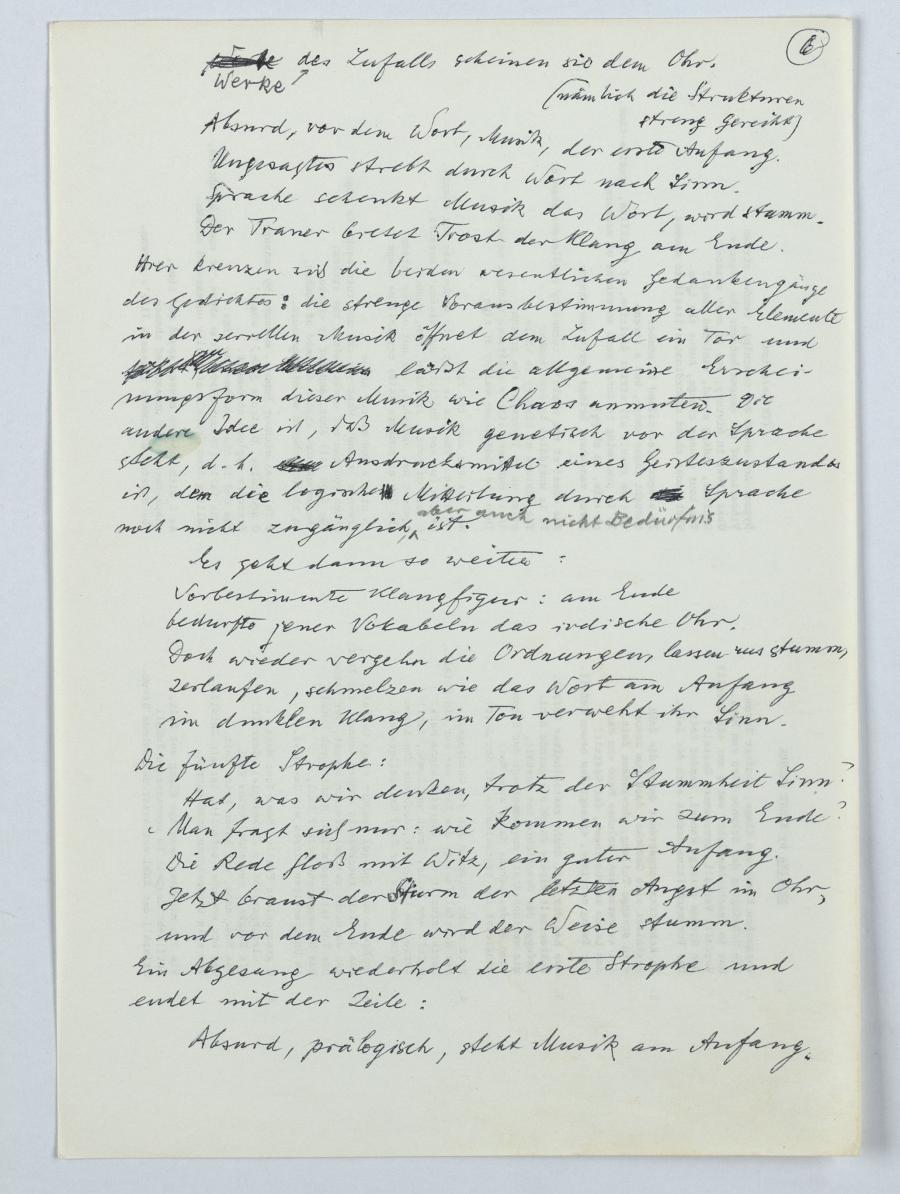 6
des Zufalls scheinen sie dem Ohr.
Werke
(nämlich die Strukturen
streng gereiht)
Absurd, vor dem Wort, Musik, der erste Anfang.
Ungesagtes strebt durch Wort nach Sinn.
Sprache schenkt Musik das Wort, wird stumm.
Der Trauer bietet Trost der Klang am Ende.
Hier kreuzen sich die beiden wesentlichen Gedankengänge
des Gedichtes: die strenge Vorausbestimmung aller Elemente
in der seriellen Musik öffnet dem Zufall ein Tor und
läßt die allgemeine Erschei-
nungsform dieser Musik wie Chaos anmuten. Die
andere Idee ist, daß Musik genetisch vor der Sprache
steht, d. h. Ausdrucksmittel eines Geisteszustandes
ist, dem die logische Mitteilung durch Sprache
noch nicht zugänglich, aber auch nicht Bedürfnis ist.
Es geht dann so weiter:
Vorbestimmte Klangfigur: am Ende
bedurfte jener Vokabeln das irdische Ohr.
Doch wieder vergehn die Ordnungen, lassen uns stumm,
zerlaufen, schmelzen wie das Wort am Anfang
im dunklen Klang, im Ton verweht ihr Sinn.
Die fünfte Strophe:
Hat, was wir denken, trotz der Stummheit Sinn?
Man fragt sich nur: wie kommen wir zum Ende?
Die Rede floß mit Witz, ein guter Anfang.
Jetzt braust der Sturm der letzten Angst im Ohr,
und vor dem Ende wird der Weise stumm.
Ein Abgesang wiederholt die erste Strophe und
endet mit der Zeile:
Absurd, prälogisch, steht Musik am Anfang.